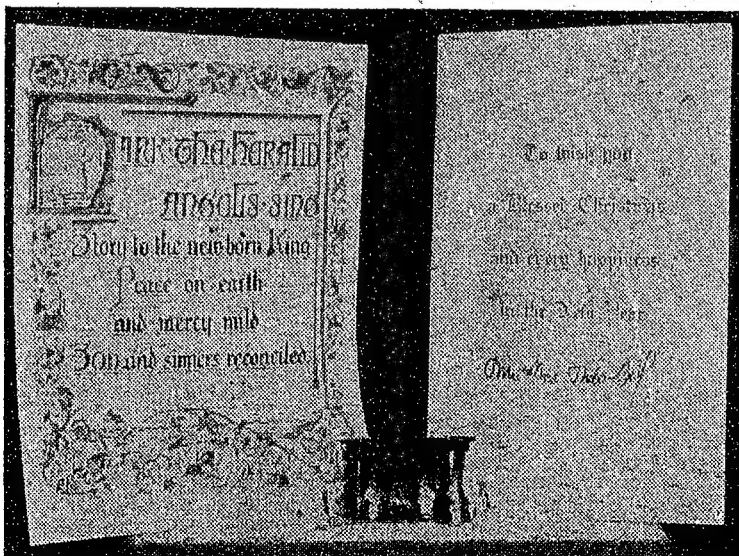 Hark the herald
angels sing
Glory to the newborn King
Peace on earth
and mercy mild
God and sinners reconciled
To wish you
a Blessed Christmas
and every happiness
in the New Year